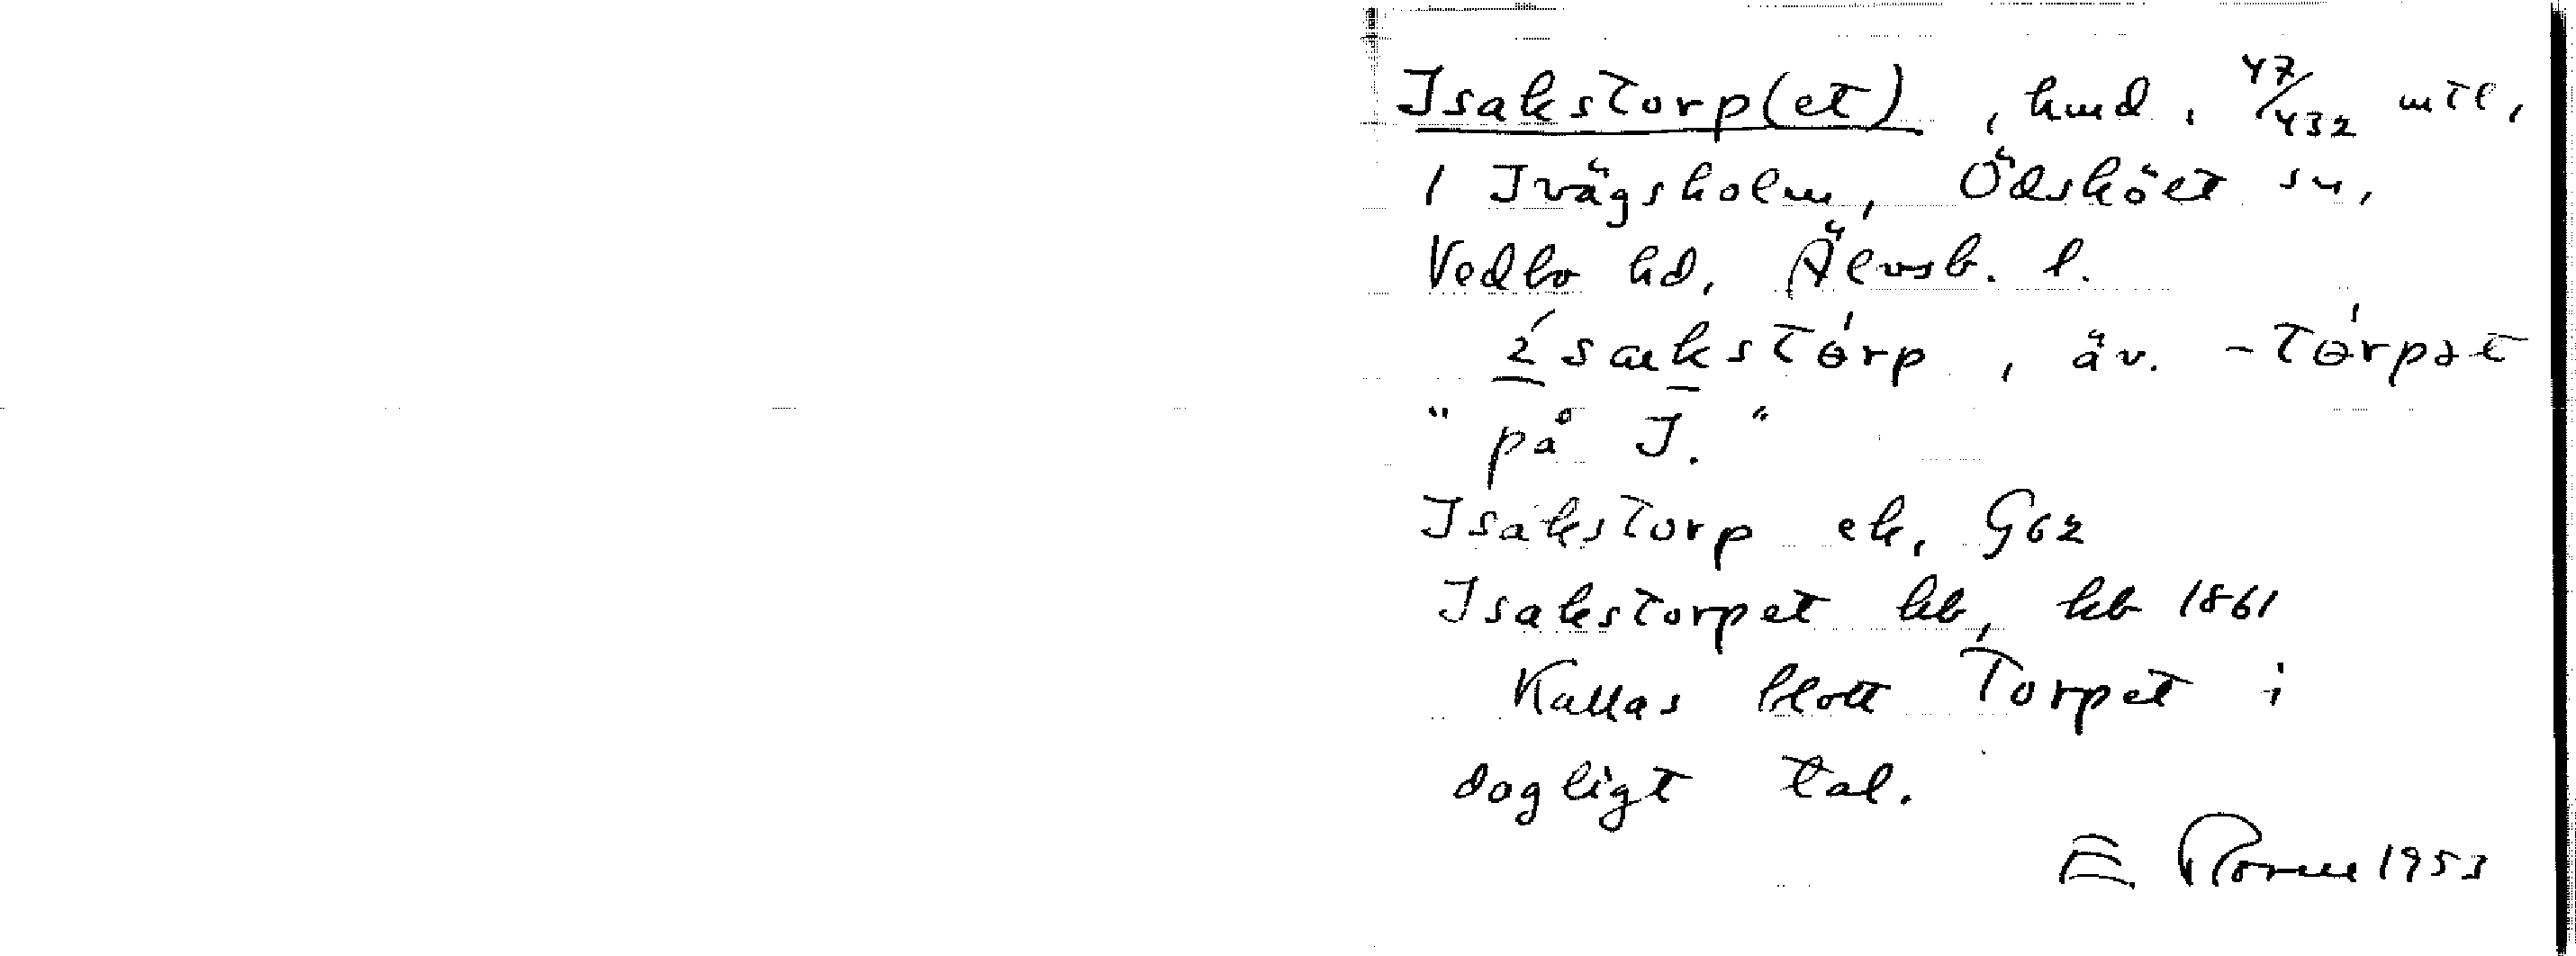 Isakstorp(et), hmd. 47/432 mtl,
1 Ivägsholm, Ödsköet sn,
Vedbo hd, Älvsb. l.
ísakstɵ́rp, äv. -tɵ́rpət
"på I."
Isakstorp ek, G62
Isakstorpet hb, kb 1861
Kallas blott Torpet i
dagligt tal.
E 1953